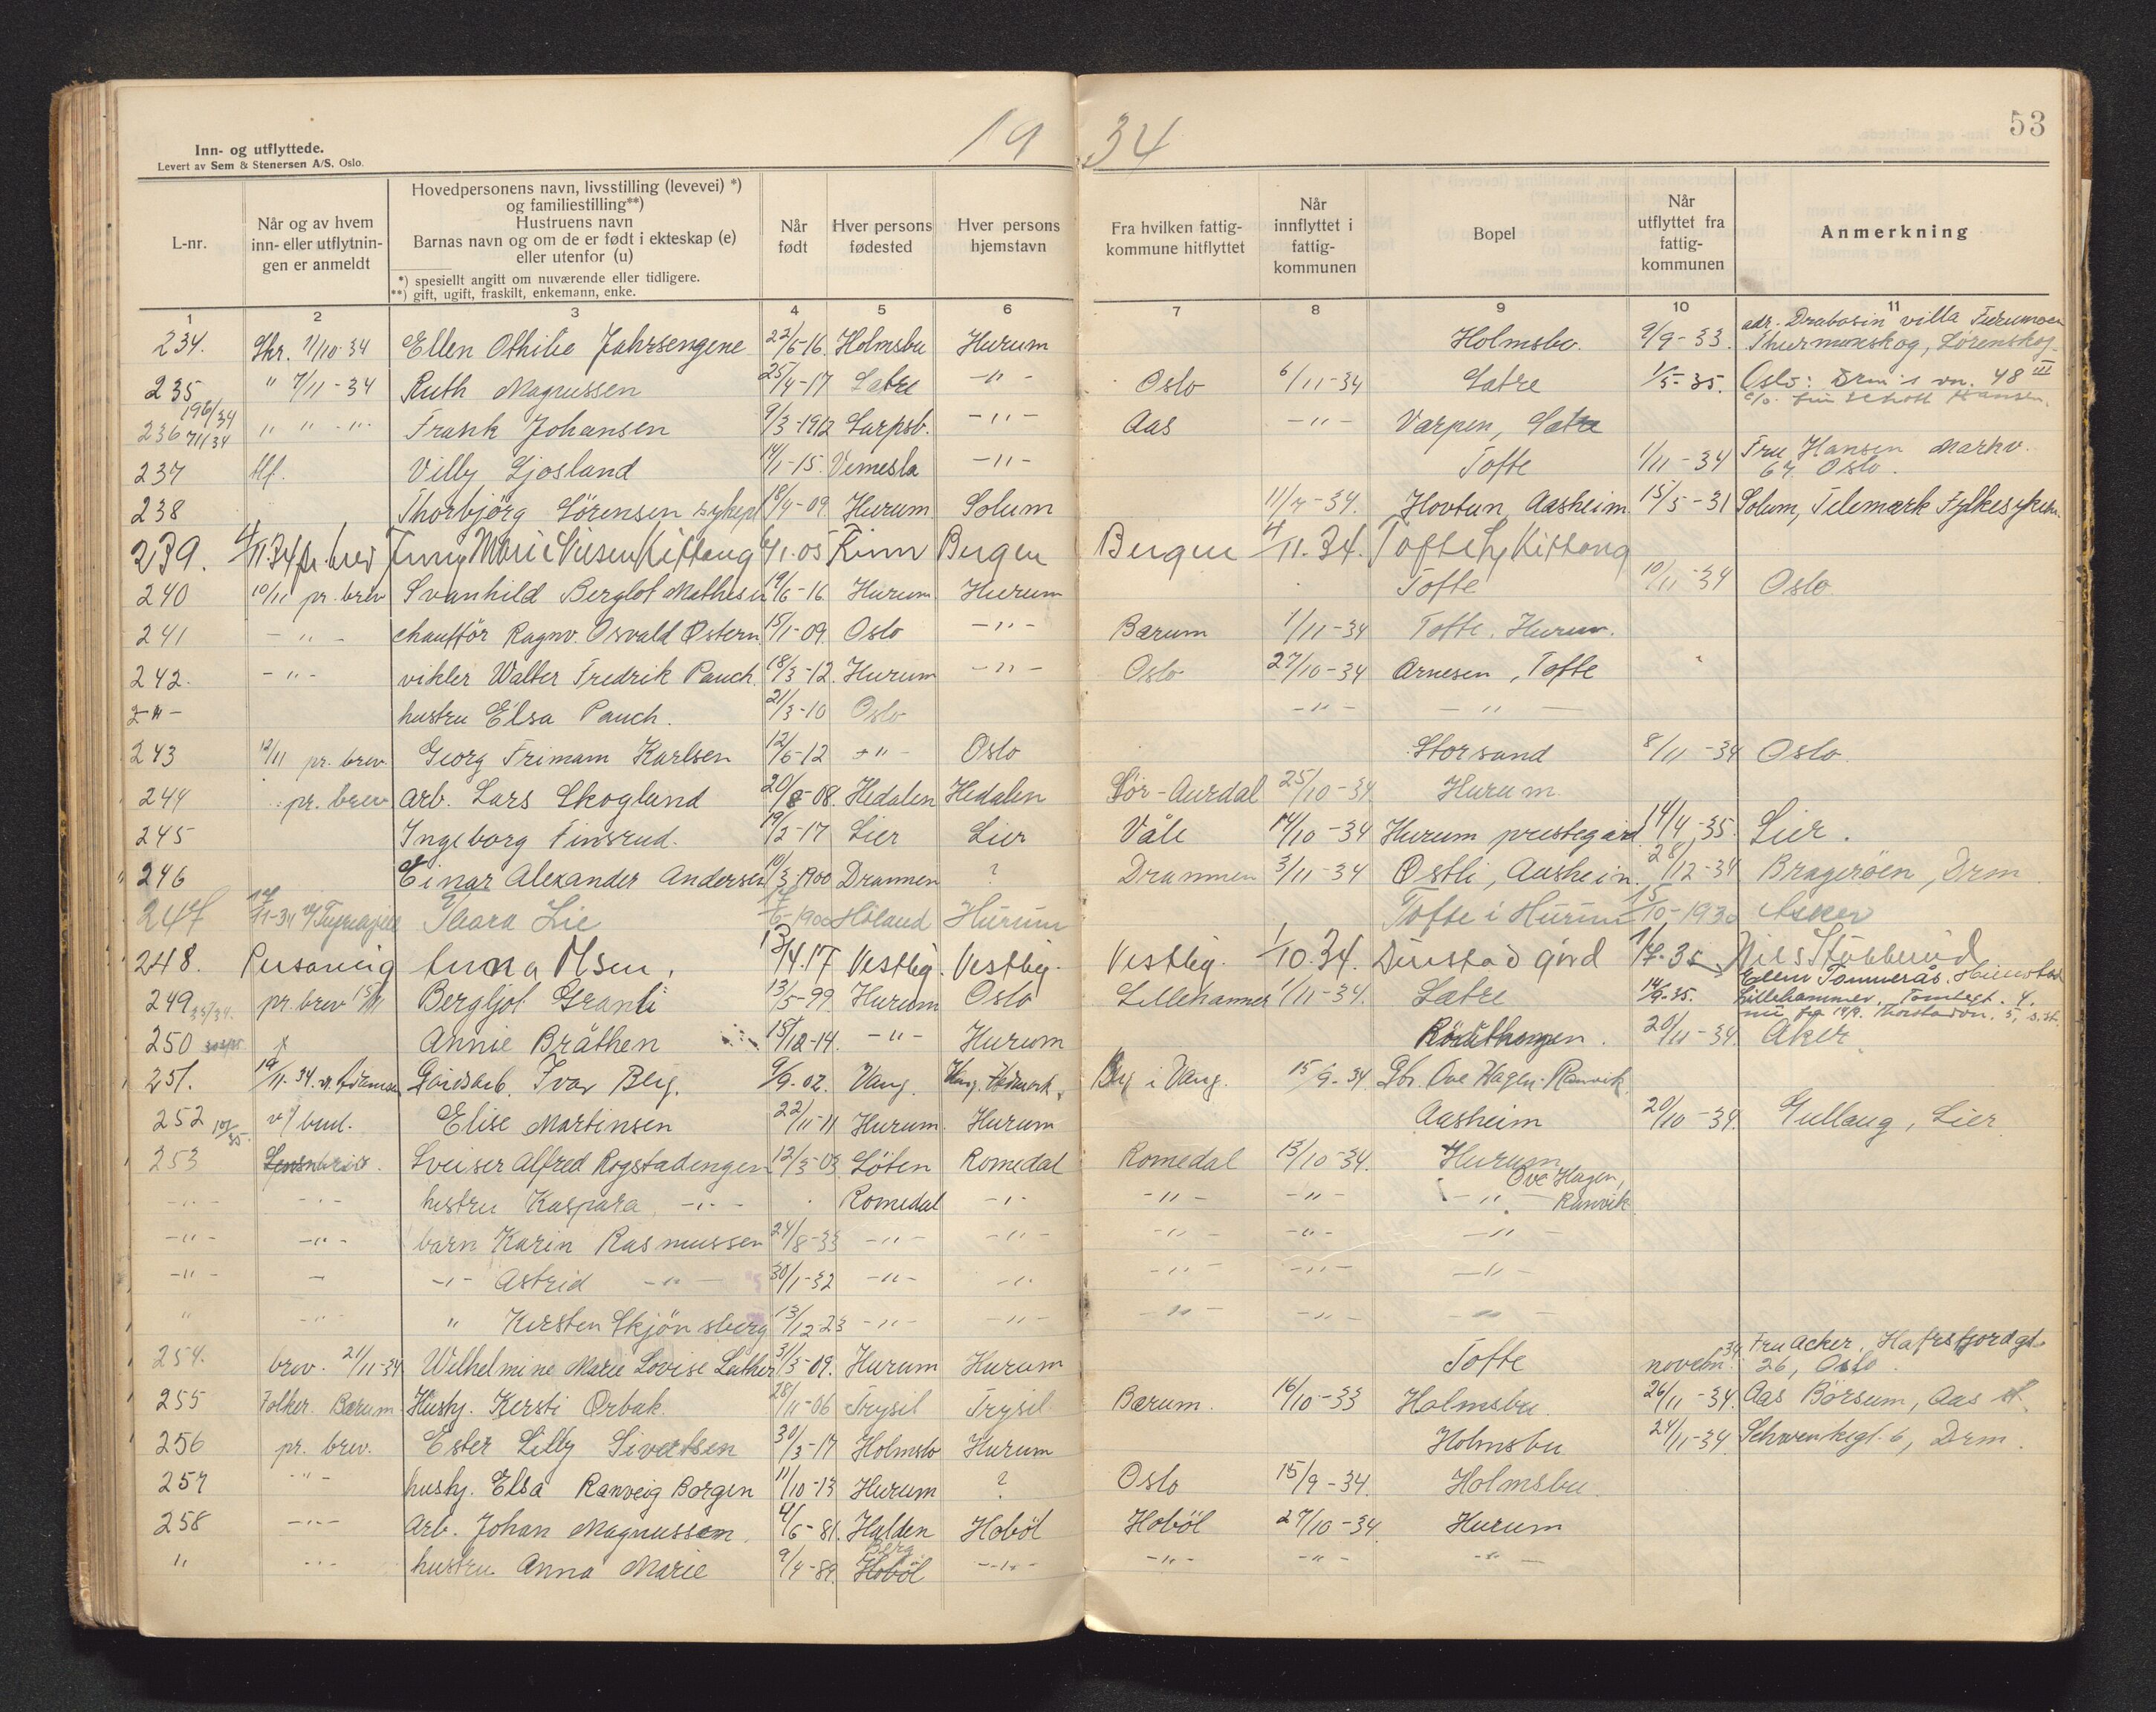 19 34
53
Inn- og utflyttede.
Levert av Sem & Stenersen A/S. Oslo.
L-nr.
Når og av hvem inn- eller utflytnin-gen er anmeldt
Hovedpersonens navn, livsstilling (levevei) *)
og familiestilling**)
Hustruens navn
Barnas navn og om de er født i ekteskap (e)
eller utenfor (u)
*) spesiellt angitt om nuværende eller tidligere.
**) gift, ugift, fraskilt, enkemann, enke.
Når født
Hver persons fødested
Hver persons hjemstavn
Fra hvilken fattig-kommune hitflyttet
Når innflyttet i fattig-kommunen
Bopel
Når utflyttet fra fattig-kommunen
Anmerkning
1 2 3 4 5 6 7 8 9 10 11
234. Skr. 11/10-34 Ellen Othilie Jahrsengene 22/5-16. Holmsbu Hurum Holmsbu. 9/9-33. adr. villa Furumoen Thurmanskog, Lørenskog
235 " 7/11-34 Ruth Magnussen 25/4-17 Sætre -"- Oslo 6/11-34 Sætre 1/5-35. Oslo: Drm's vn. 48 III
196/34 236 71/34 " " -"- Frank Johansen 9/3-1912 Sarpsb. -"- Aas -"- Varpen, Sætre
237 tlf. Villy Ljosland 14/1-15. Vennesla -"- Tofte 1/11-34 Fru Hansen Markv. 67. Oslo.
238 Thorbjörg Sörensen sykepl 18/4-09. Hurum Solum 11/7-34. Hovtun, Aasheim 15/5-31 Solum, Telemark Fylkessykeh.
239. 4/11.34 pr. brev Jenny Marie Kittang 4/1.05 Kinn Bergen Bergen 4/11.34. Tofte Kittang
240 10/11 pr. brev Svanhild Berglot Mathisen 19/6-16 Hurum Hurum Tofte 10/11-34 Oslo
241 -"- chauffør Ragnv. Osvald Østern 15/1-09. Oslo -"- Bærum 1/11-34 Tofte, Hurum.
242. -"- vikler Walter Fredrik Pauch. 18/3-12. Hurum -"- Oslo 27/10-34 Arnesen, Tofte
-"- hustru Elsa Pauch. 21/3-10 Oslo -"- -"-
243 12/11 pr. brev. Georg Frimann Karlsen 12/6-12 -"- Oslo Storsand 8/11-34 Oslo
244 pr. brev Arb. Lars Skoglund 20/8-08. Hedalen Hedalen Sör-Aurdal 25/10-34 Hurum
245 Ingeborg Finsrud. 19/2-17 Lier Lier Våle 14/10-34 Hurum prestegård 14/4-35. Lier.
246 Einar Alexander Andersen 10/3-1900 Drammen ? Drammen 3/11-34 Østli, Aasheim. 28/12-34 Bragerøen, Drm
247 Thora Lie 17/6-1900 Høland Hurum Tofte i Hurum 15/10-1930 Asker
248. Personlig Anna Olsen. 13/4.17 Vestby. Vestby. Vestby. 1/10.34. gård 1/7-35 Nils Stubberud
249 33/34. pr. brev 15/11 Bergljot Granli 13/5-99. Hurum Oslo Lillehammer 1/11-34. Sætre 14/9-35. Lillehammer. Tomtegt. 4.
250 Annie Bråthen 15/12-14. -"- Hurum 20/11-34 Aker
251. 19/11-34. Gårdsarb. Ivar Berg. 9/9-02. Vang. Vang. Hedmark. Berg i Vang. 15/9-34 Gbr. Ove Hagen. Ranvik.
252 v/ bud. Elise Martinsen 22/11-11 Hurum. Hurum Aasheim 20/10-34. Gullaug, Lier
253 Sveiser Alfred Rogstadengen 12/3-03 Löten Romedal Romedal 13/10-34. Hurum
-"- -"- hustru Kaspara -"- Romedal -"- -"- -"- -"- Ove Hagen, Ranvik
-"- -"- barn Karin Rasmussen 24/8-33 -"- -"- -"- -"- -"-
-"- - -"- Astrid -"- 30/1-32 -"- -"- -"- -"- -"-
" -"- " Kirsten Skjönsberg 13/12-23 -"- -"- -"- -"- -"-
254. brev. 21/11-34 Wilhelmine Marie Lovise Luther 31/3-09. Hurum Hurum Tofte novebr. 34 Fru Acker, Hafrsfjordgt. 26, Oslo.
255 Folker. Bærum Hushj. Kersti Ørbæk. 28/11-06 Trysil Trysil Bærum. 16/10-33 Holmsbu. 26/11-34. Aas Börsum, Aas st.
256 pr. brev. Ester Lilly Sivertsen 30/3-17 Holmsbo Hurum Holmsbu 24/11-34 Schwenkegt. 6, Drm.
257 -"- hushj. Elsa Ranveig Borgen 11/10-13 Hurum ? Oslo 15/9-34. Holmsbu.
258 -"- Arb. Johan Magnussen. 4/6-81. Halden Hobøl Hobøl 27/10-34. Hurum
" -"- hustru Anna Marie 9/4-89. Berg Hobøl -"- -"- -"- -"-